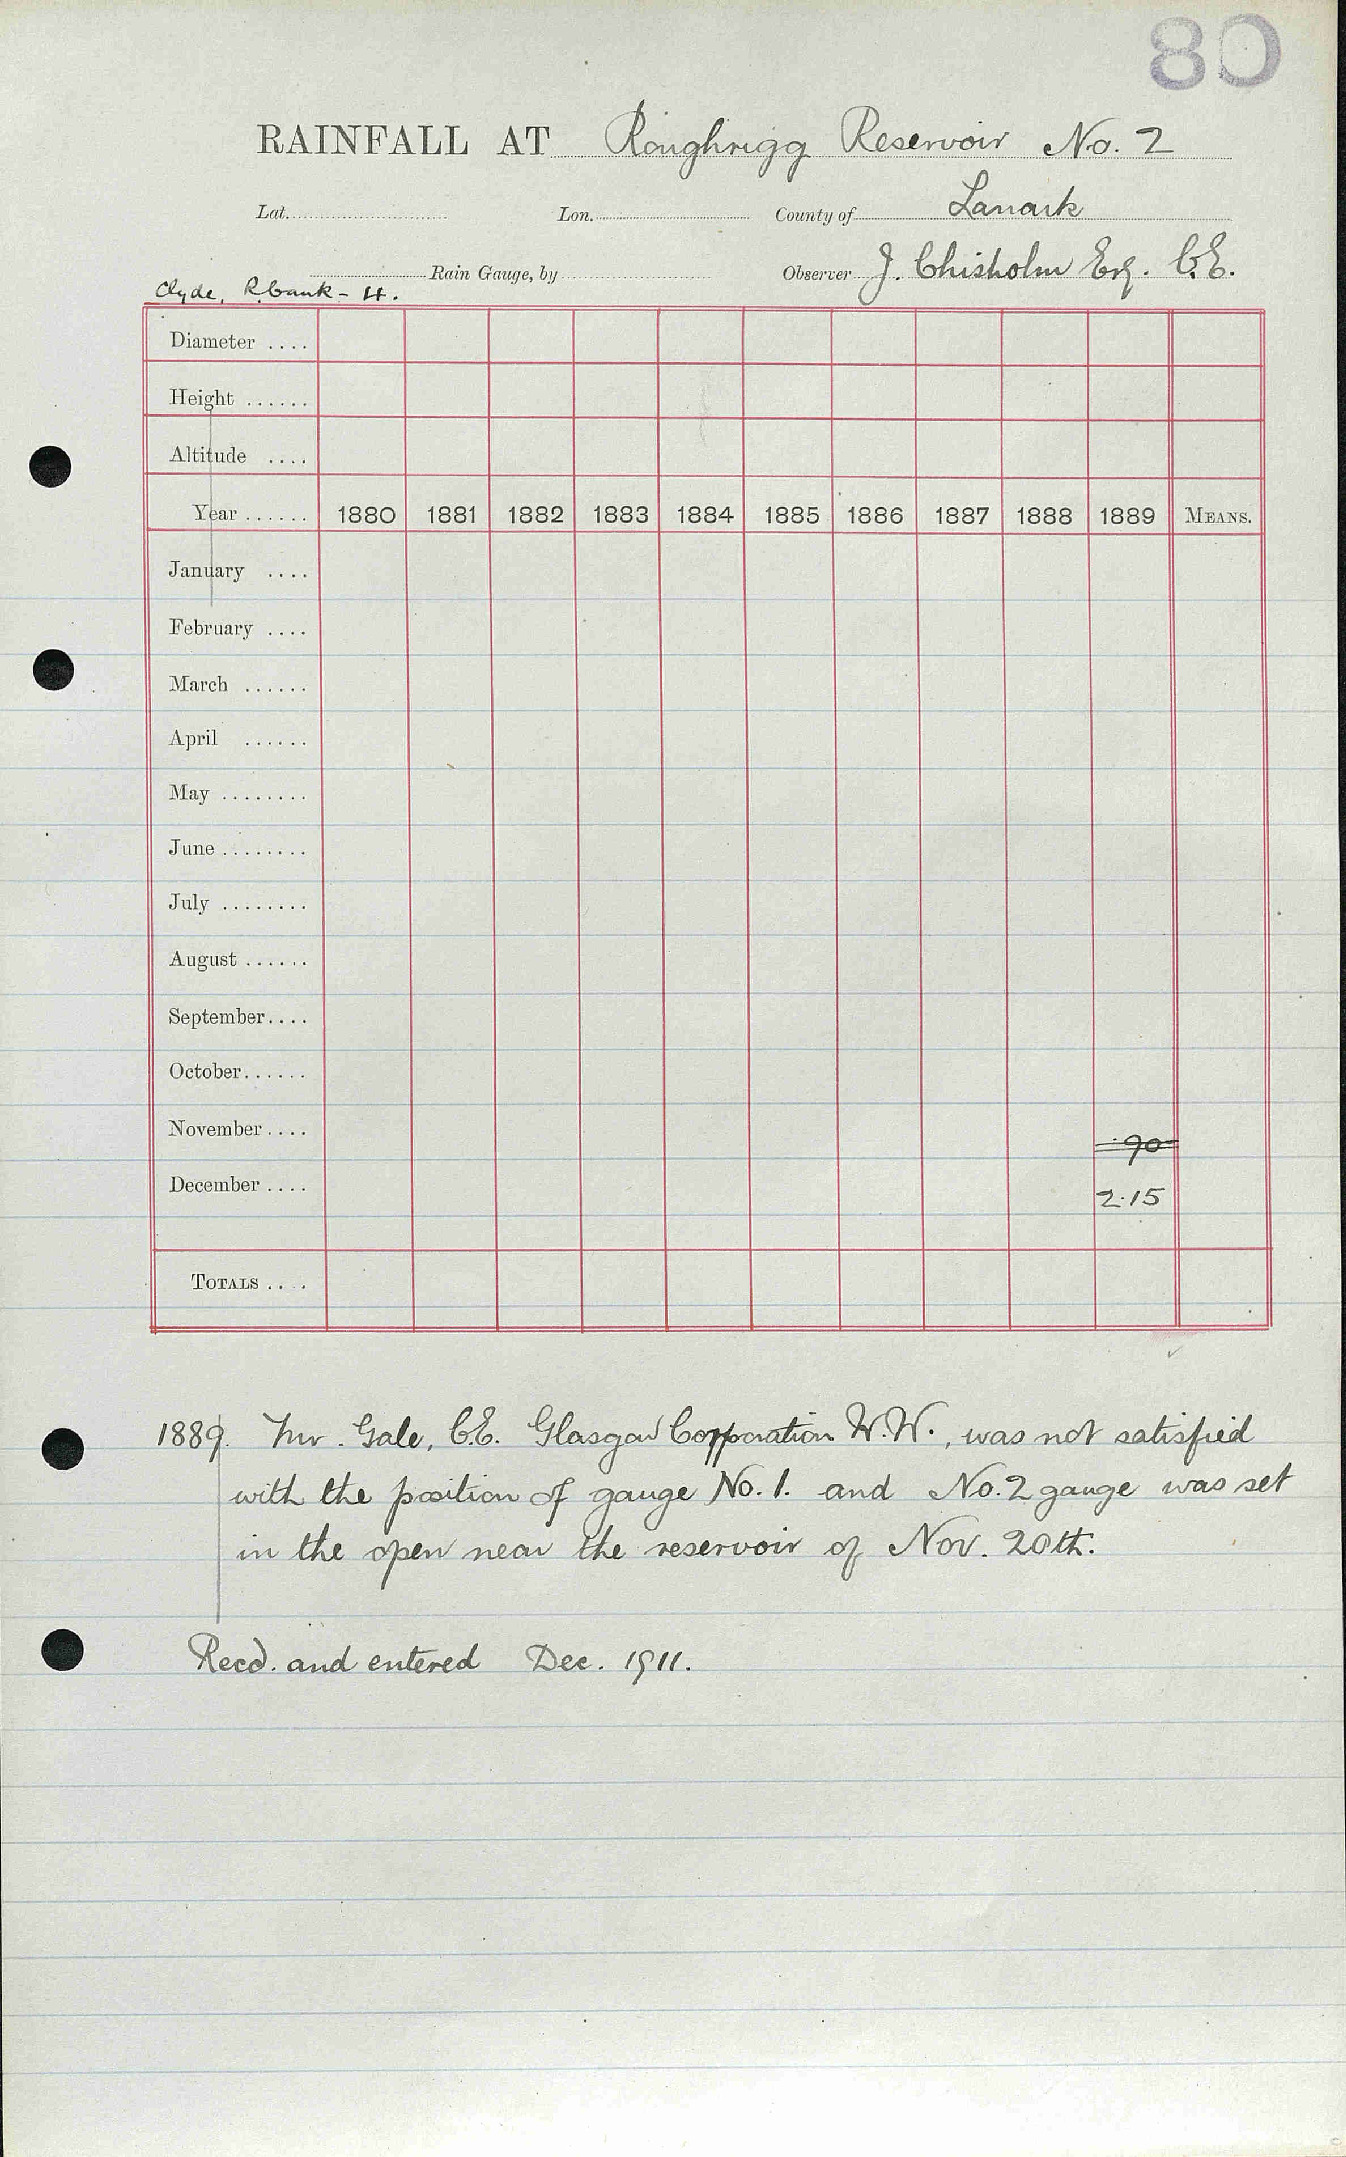 80
RAINFALL AT Roughrigg Reservoir No. 2
Lat. Lon. County of Lanark
Rain Gauge, by Observer J. Chisholm Esq. C.E.
Clyde, R. bank - 4.
Diameter ....
Height ......
Altitude ....
Year ...... 1880 1881 1882 1883 1884 1885 1886 1887 1888 1889 MEANS.
January ....
February ....
March ......
April ......
May ........
June ........
July ........
August ......
September ....
October ......
November .... .90
December .... 2.15
TOTALS ....
1889. Mr. Gale, C.E. Glasgow Corporation W.W., was not satisfied
with the position of gauge No. 1. and No. 2 gauge was set
in the open near the reservoir of Nov. 20th.
Recd. and entered Dec. 1911.